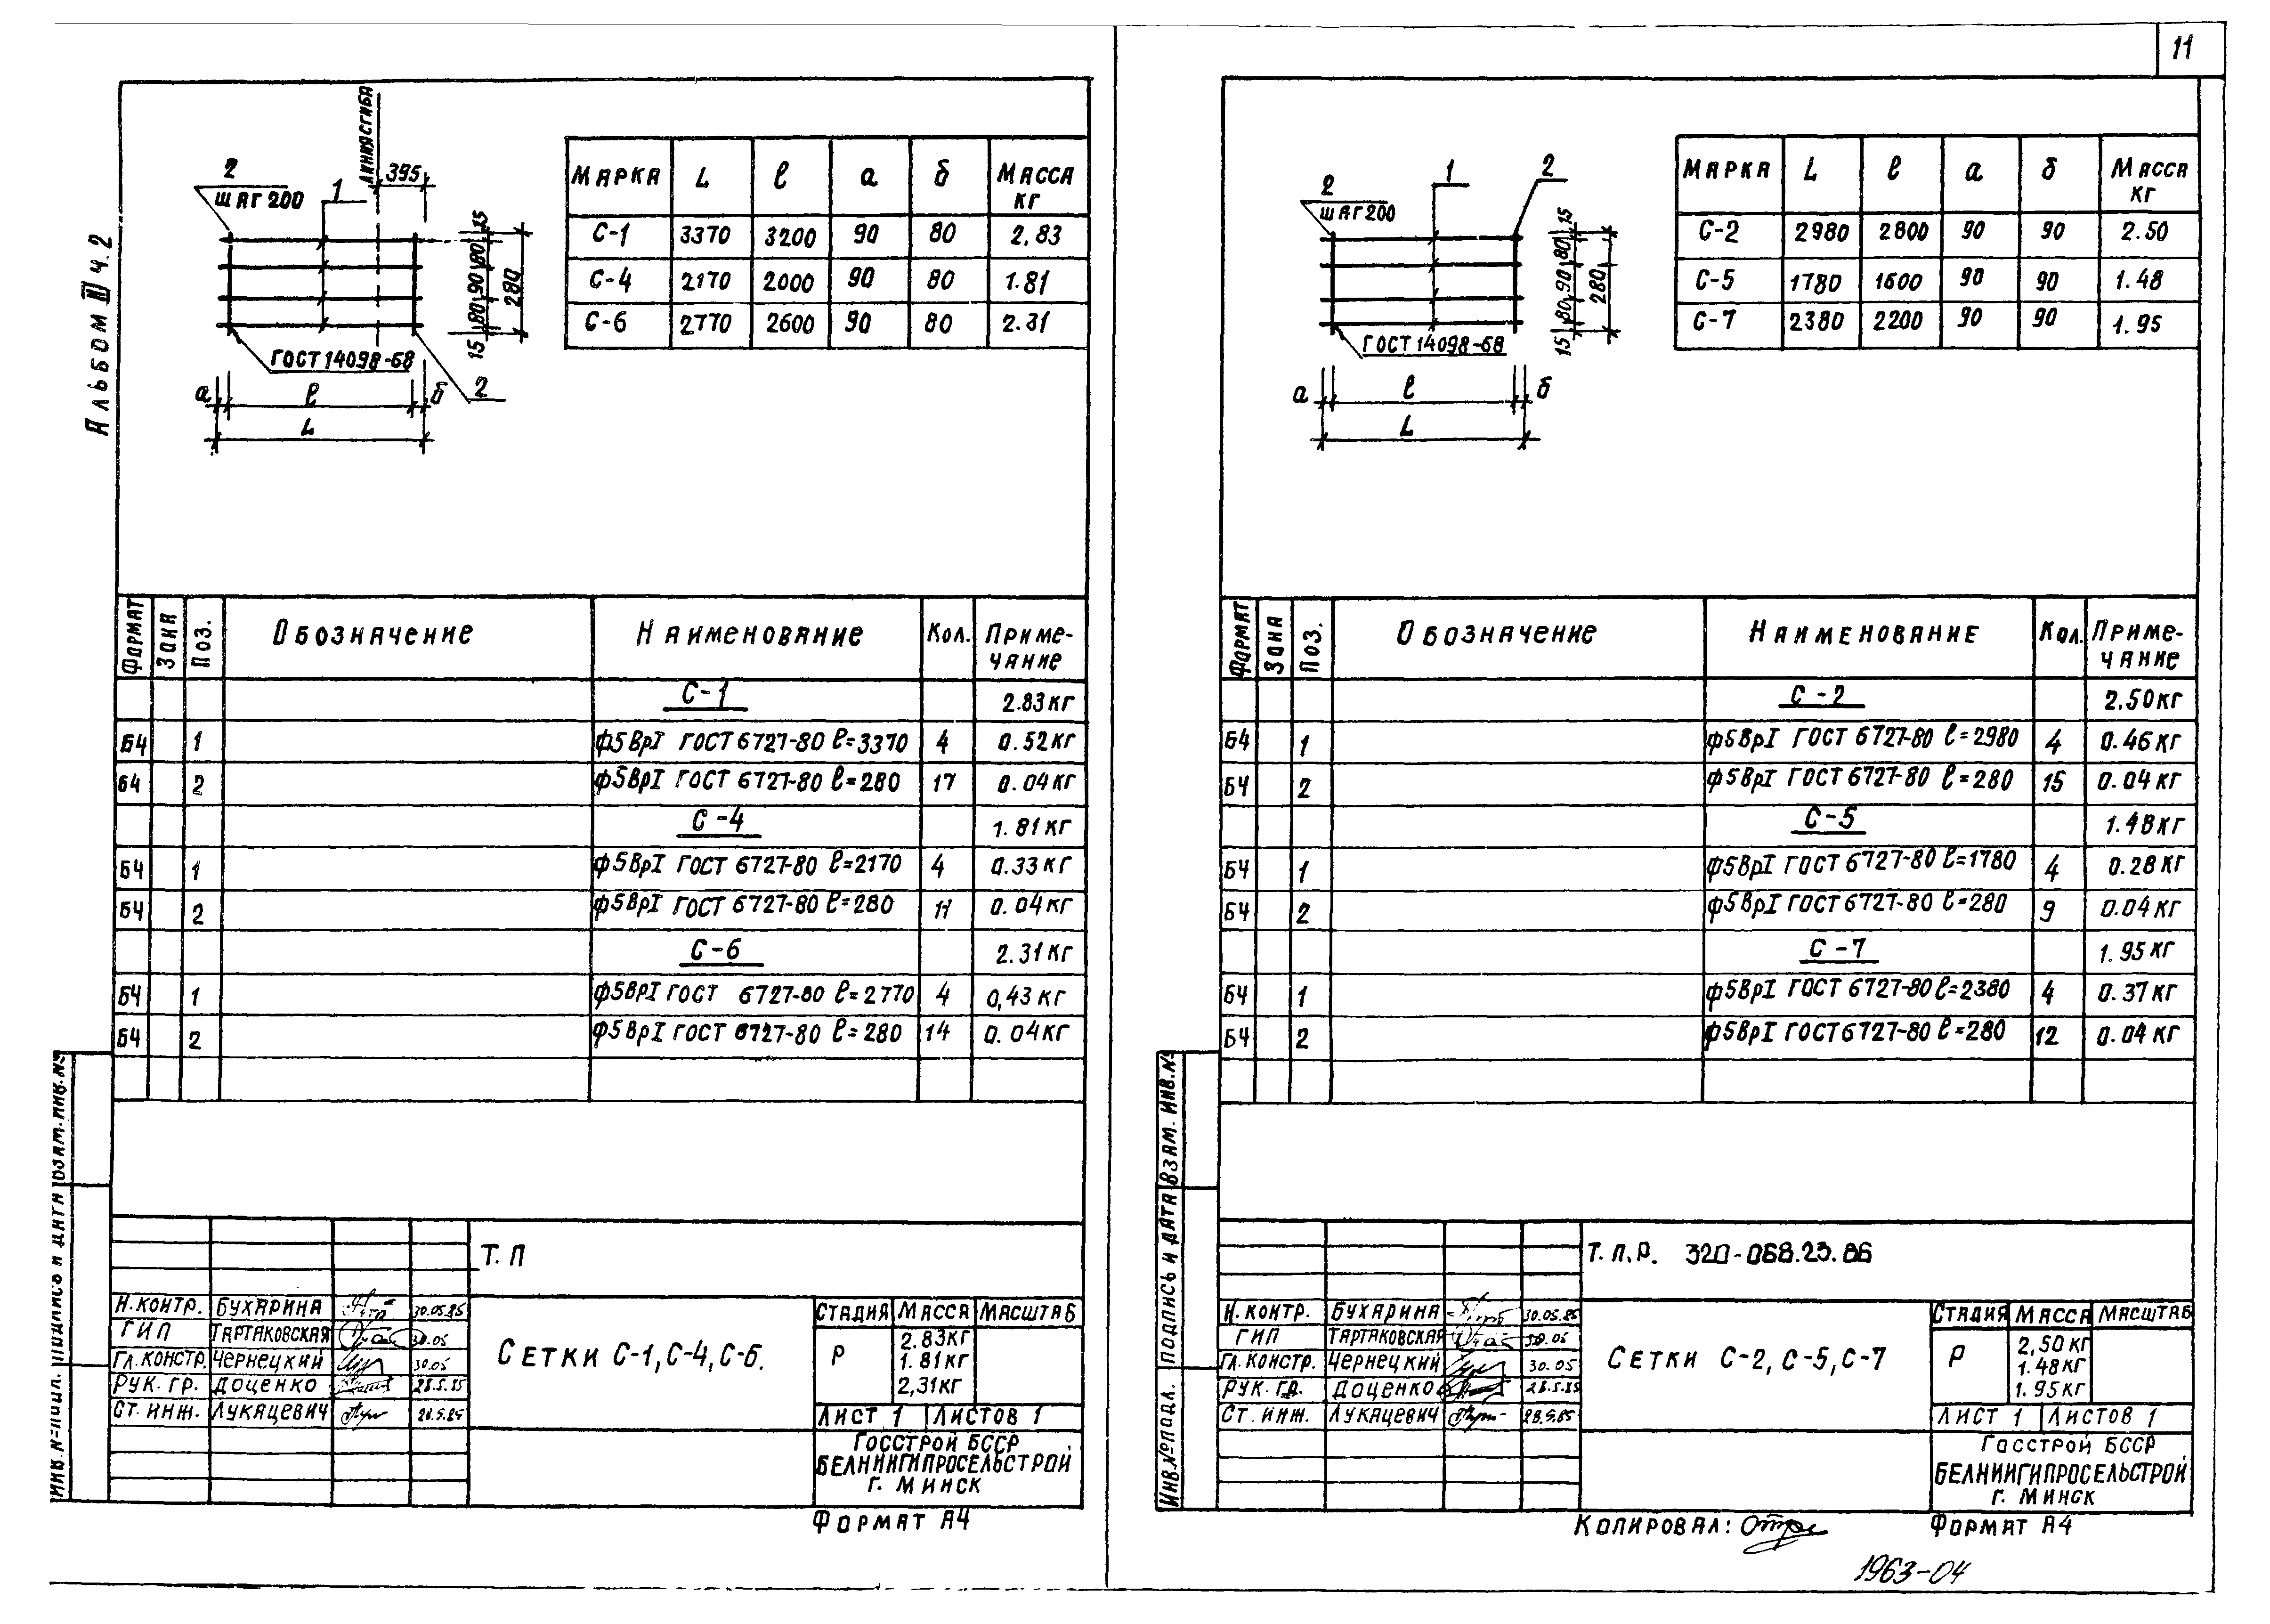 11
Альбом III ч.2
Линия сгиба
395
2
шаг 200
1
15
80
90
80
15
280
ГОСТ 14098-68
2
а
ℓ
б
L
Марка L ℓ а б Масса кг
С-1 3370 3200 90 80 2,83
С-4 2170 2000 90 80 1.81
С-6 2770 2600 90 80 2.31
Формат Зона Поз. Обозначение Наименование Кол. Приме-
чание
С-1 2.83 кг
Б4 1 ф5ВрI ГОСТ 6727-80 ℓ=3370 4 0.52 кг
Б4 2 ф5ВрI ГОСТ 6727-80 ℓ=280 17 0.04 кг
С-4 1.81 кг
Б4 1 ф5ВрI ГОСТ 6727-80 ℓ=2170 4 0.33 кг
Б4 2 ф5ВрI ГОСТ 6727-80 ℓ=280 11 0.04 кг
С-6 2.31 кг
Б4 1 ф5ВрI ГОСТ 6727-80 ℓ=2770 4 0,43 кг
Б4 2 ф5ВрI ГОСТ 6727-80 ℓ=280 14 0.04 кг
Взам. инв. №
Подпись и дата
Инв. № подл.
Т.П
Н.контр. Бухарина 30.05.85
ГИП Тартаковская 30.05
Гл.констр. Чернецкий 30.05
Рук. гр. Доценко 28.5.85
Ст. инж. Лукацевич 28.5.85
Сетки С-1, С-4, С-6.
Стадия Масса Масштаб
Р
2.83кг
1.81кг
2,31кг
Лист 1 Листов 1
Госстрой БССР
БЕЛНИИГИПРОСЕЛЬСТРОЙ
г. Минск
Формат А4
2
шаг 200
1
2
15
80
90
80
15
280
ГОСТ 14098-68
а
ℓ
б
L
Марка L ℓ а б Масса кг
С-2 2980 2800 90 90 2.50
С-5 1780 1600 90 90 1.48
С-7 2380 2200 90 90 1.95
Формат Зона Поз. Обозначение Наименование Кол. Приме-
чание
С-2 2.50 кг
Б4 1 ф5ВрI ГОСТ 6727-80 ℓ=2980 4 0.46 кг
Б4 2 ф5ВрI ГОСТ 6727-80 ℓ=280 15 0.04 кг
С-5 1.48 кг
Б4 1 ф5ВрI ГОСТ 6727-80 ℓ=1780 4 0.28 кг
Б4 2 ф5ВрI ГОСТ 6727-80 ℓ=280 9 0.04 кг
С-7 1.95 кг
Б4 1 ф5ВрI ГОСТ 6727-80 ℓ=2380 4 0.37 кг
Б4 2 ф5ВрI ГОСТ 6727-80 ℓ=280 12 0.04 кг
Взам. инв. №
Подпись и дата
Инв. № подл.
Т.П.Р. 320-068.23.86
Н.контр. Бухарина 30.05.85
ГИП Тартаковская 30.05
Гл.констр. Чернецкий 30.05
Рук. гр. Доценко 28.5.85
Ст. инж. Лукацевич 28.5.85
Сетки С-2, С-5, С-7
Стадия Масса Масштаб
Р
2,50 кг
1.48 кг
1.95 кг
Лист 1 Листов 1
Госстрой БССР
БЕЛНИИГИПРОСЕЛЬСТРОЙ
г. Минск
Копировал:
Формат А4
1963-04